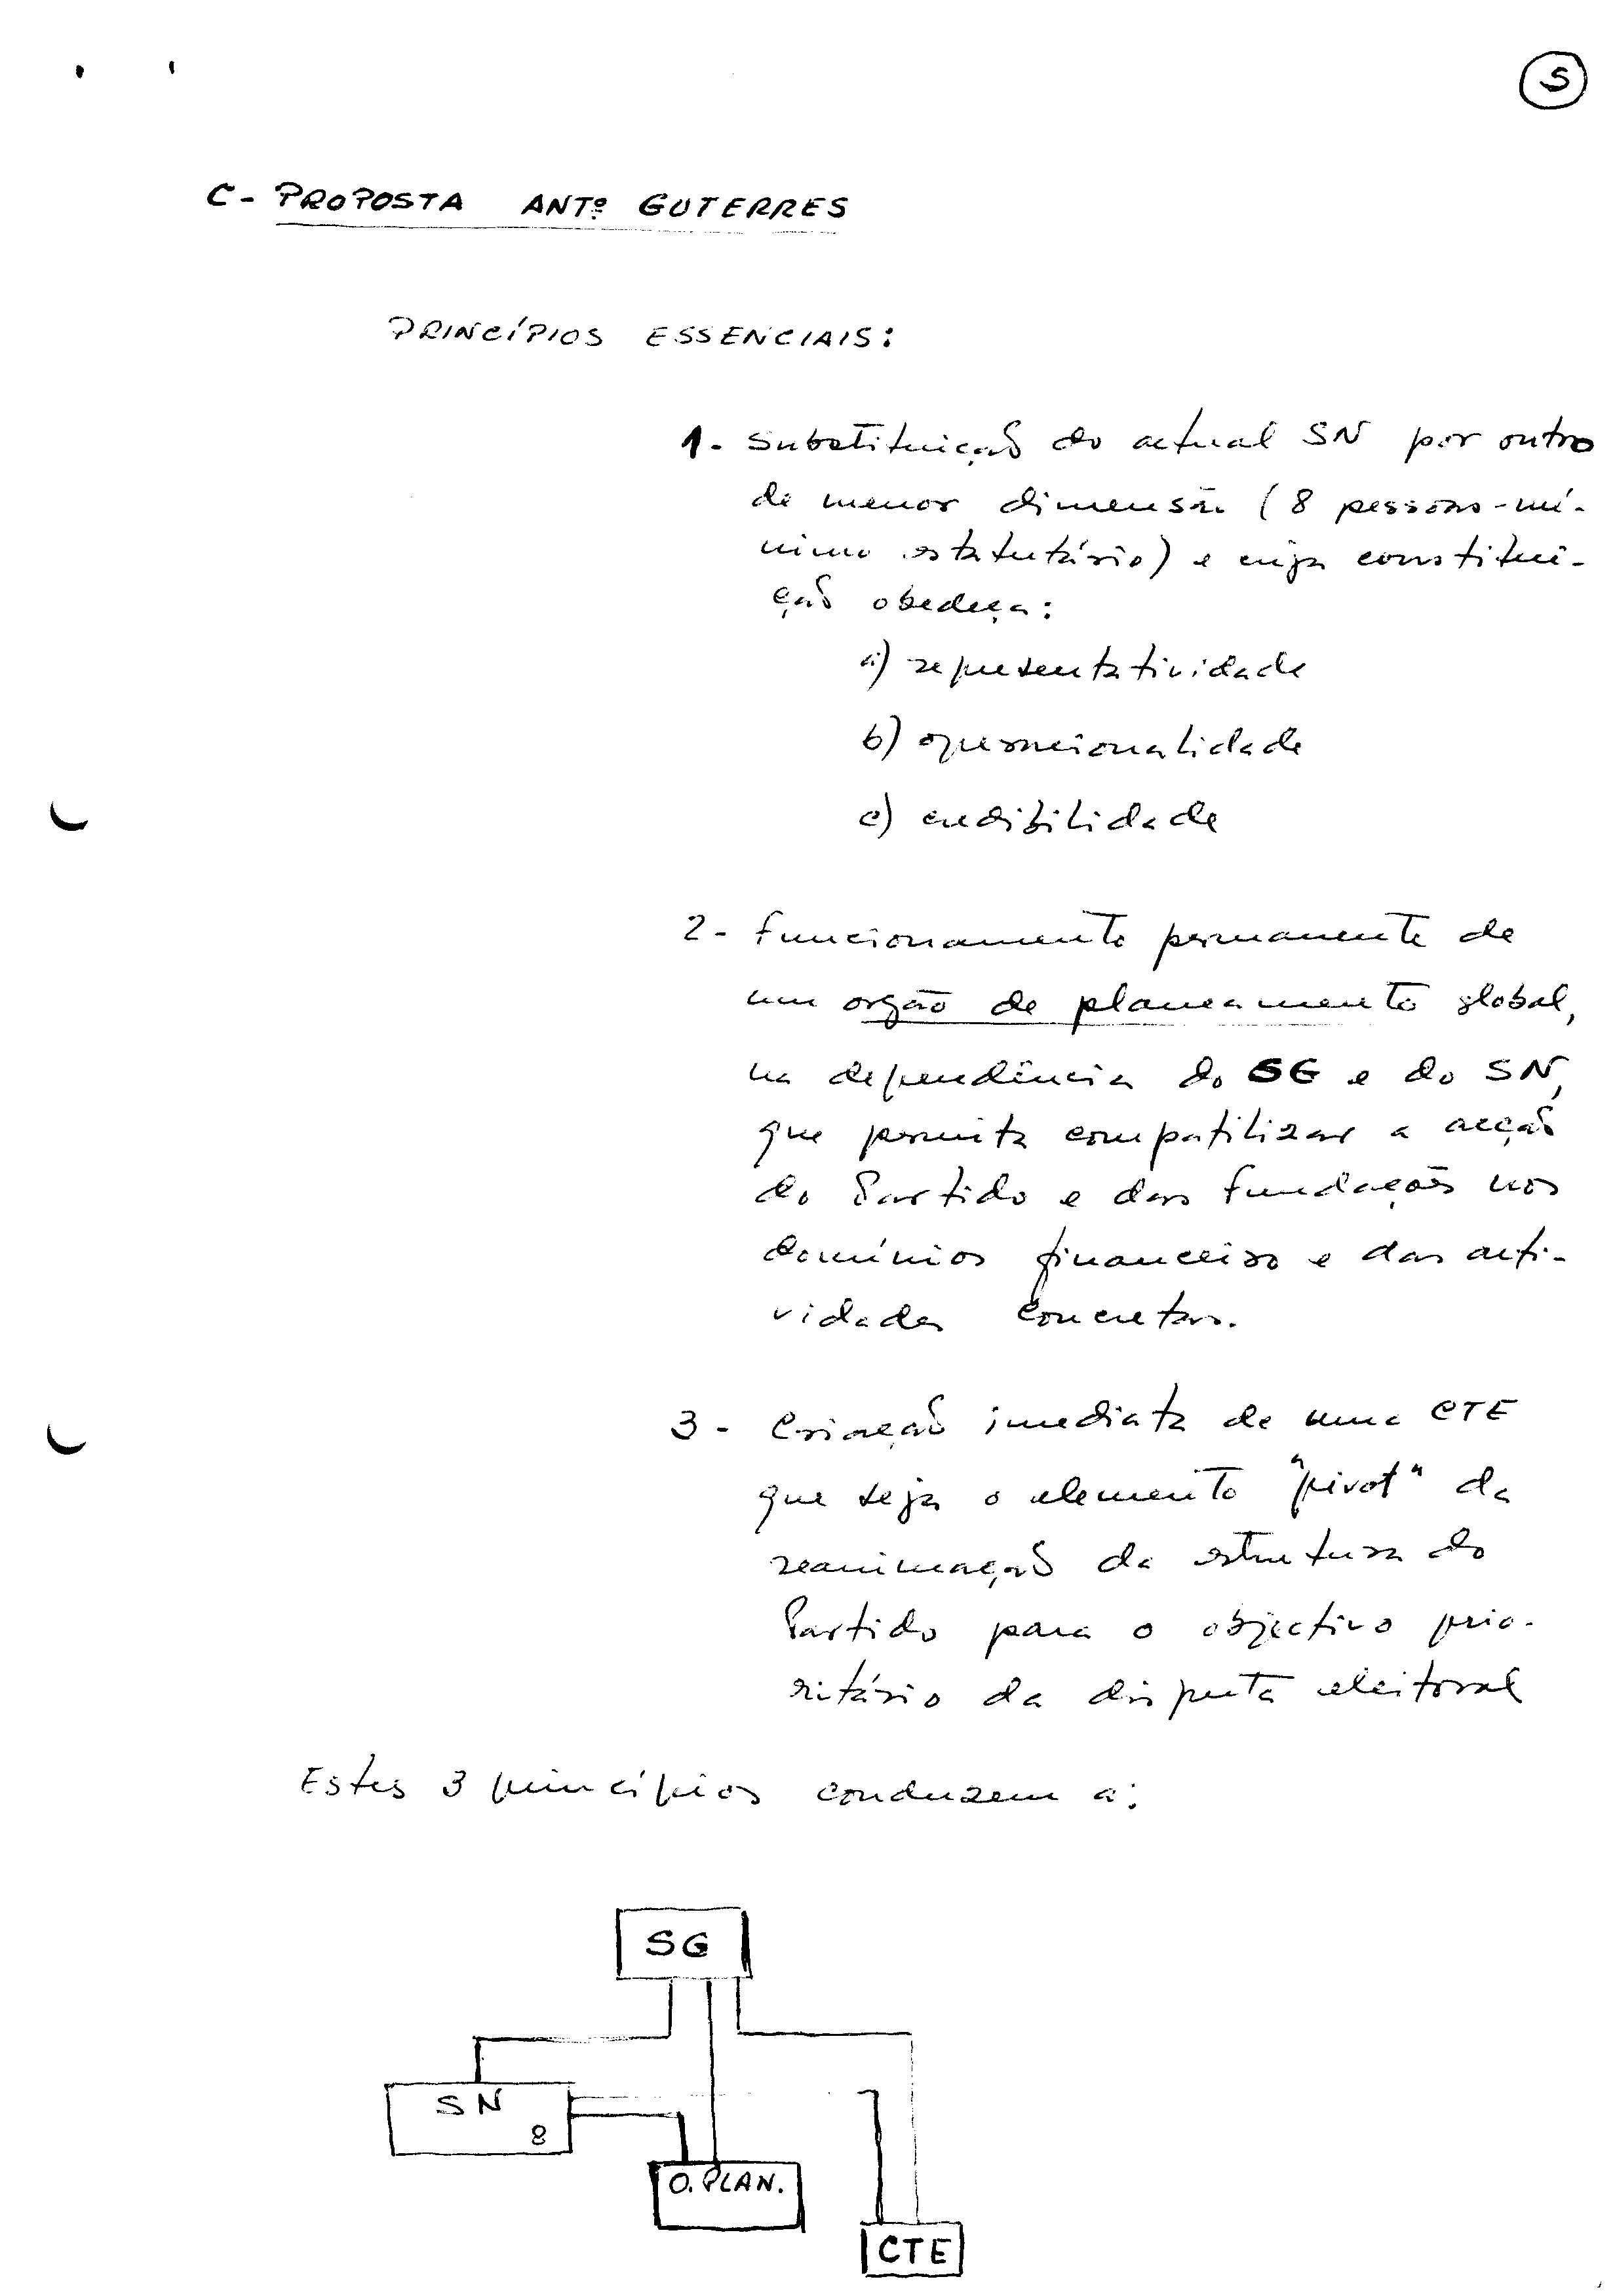 5
C - PROPOSTA ANTº GUTERRES
PRINCÍPIOS ESSENCIAIS:
1. Substituição do actual SN por outro
de menor dimensão (8 pessoas - mí-
nimo estatutário) e cuja constitui-
ção obedeça:
a) representatividade
b) operacionalidade
c) credibilidade
2 - funcionamento permanente de
um orgão de planeamento global,
na dependência do SG e do SN,
que permita compatilizar a acção
do Partido e das fundações nos
domínios financeiro e das acti-
vidades concretas.
3 - Criação imediata de uma CTE
que seja o elemento "pivot" da
reanimação da estrutura do
Partido para o objectivo prio-
ritário da disputa eleitoral
Estes 3 princípios conduzem a:
SG
SN
8
O. PLAN.
CTE